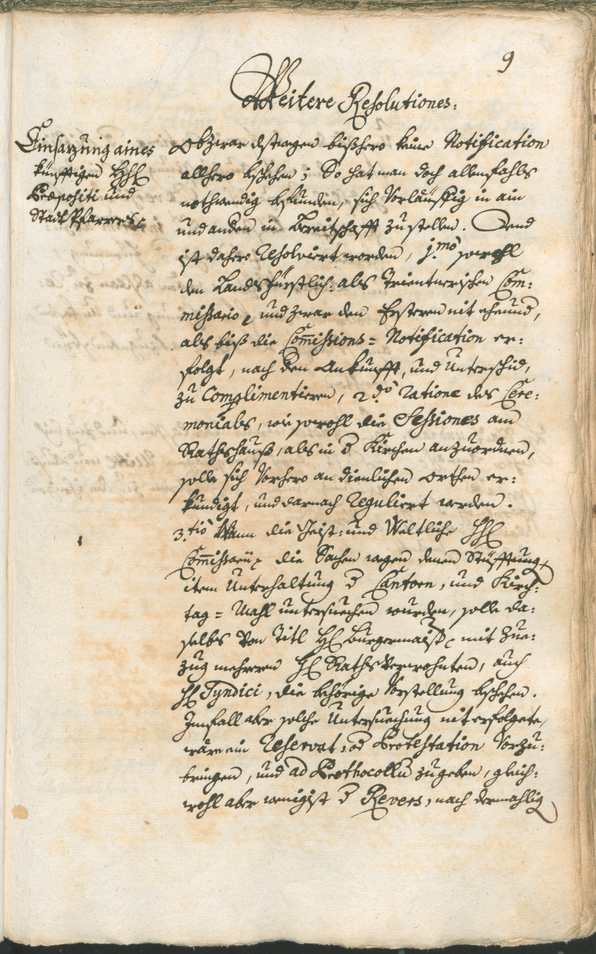 9
Weitere Resolutiones:
Einsazung aines
künfftigen HHL
Præpositi und
Statt Pfarrers:
Obzwar destwegen bißhero keine Notification
allhero beschehen; So hat man doch allenfahls
nothwendig befunden, sich Vorläuffig in ain
und andern in Bereitschafft zu stellen. Und
ist dahero resolviert worden, j.mo sowohl
den Landsfürstlich: als Trientnerischen Com:
missario, und zwar den Ersteren nit ehender,
als biß die Commissions = Notification er:
folgt, nach der Ankunfft, und Unterschid,
zu Complimentieren, 2.do ratione des Cere:
moniales, wie sowohl die Sessiones am
Rathshauß, als in d Kirchen anzuordnen,
solle sich Vorhero an dienlichen Orthen er:
kundigt, und darnach reguliert werden.
3.tio Wann die Geist: und Weltliche HH
Commissarii die Sachen wegen denen Stüfftung
item Unterhaltung d Cantorn, und Kirch:
tag = Mahl untersuechen wurden, solle da:
selbs von Titl H Burgermaist mit Zue:
zug mehrern H Raths Verwohnten, auch
H Syndici, die behörige Vorstellung beschehen.
Im fall aber solche Untersuechung nit erfolgete,
wäre ein Reservat: od Protestation Vorzu:
bringen, und ad Prothocollu zu geben, gleich:
wohl aber wenigist d Revers, nach dermahlig